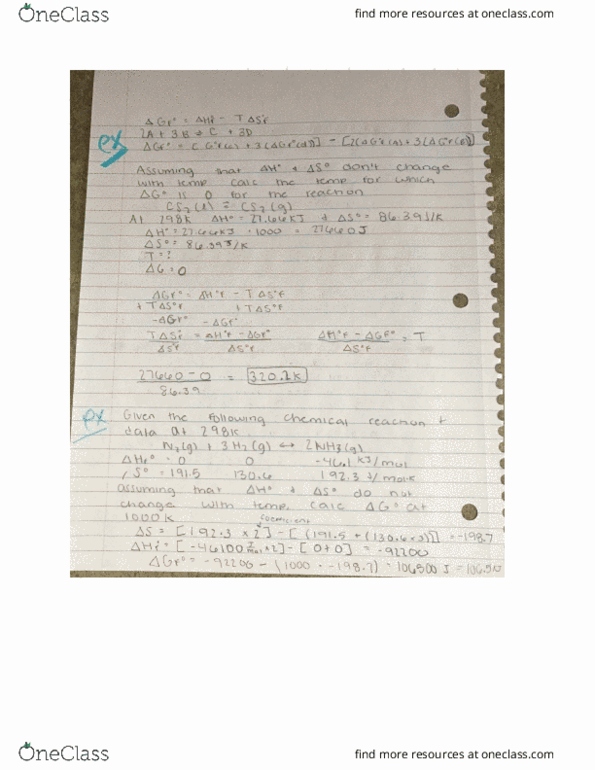 OneClass
find more resources at oneclass.com
ΔGr° = ΔHr° - TΔSr°
2A + 3B ⇌ C + 3D
ex
Assuming that ΔH° + ΔS° don't change
with temp calc the temp for which
ΔG° is 0 for the reaction
CS₂(l) ⇌ CS₂(g)
At 298K ΔH° = 27.66KJ + ΔS° = 86.39J/K
ΔH° = 27.66KJ · 1000 = 27660J
ΔS° = 86.39J/K
T = ?
ΔG = 0
ΔGr° = ΔH°r - TΔS°r
+ TΔS°r + TΔS°r
-ΔGr° -ΔGr°
TΔSr° = ΔH°r - ΔGr° ΔH°r - ΔGr° = T
ΔSr° ΔS°r ΔS°r
27660 - 0 = 320.2K
86.39
ex
Given the following chemical reaction +
data at 298K
N₂(g) + 3H₂(g) ↔ 2NH3(g)
ΔHf° = 0 0 -46.1 KJ/mol
S° = 191.5 130.6 192.3 J/mol·K
assuming that ΔH° + ΔS° do not
change with temp, calc ΔG° at
1000K
coefficient
ΔS = [192.3 × 2] - [(191.5 + (130.6 × 3)] = -198.7
= [-46100 × 2] - [0+0] = -92200
ΔGr° = -92200 - (1000 · -198.7) = 106500 J = 106.5
OneClass
find more resources at oneclass.com